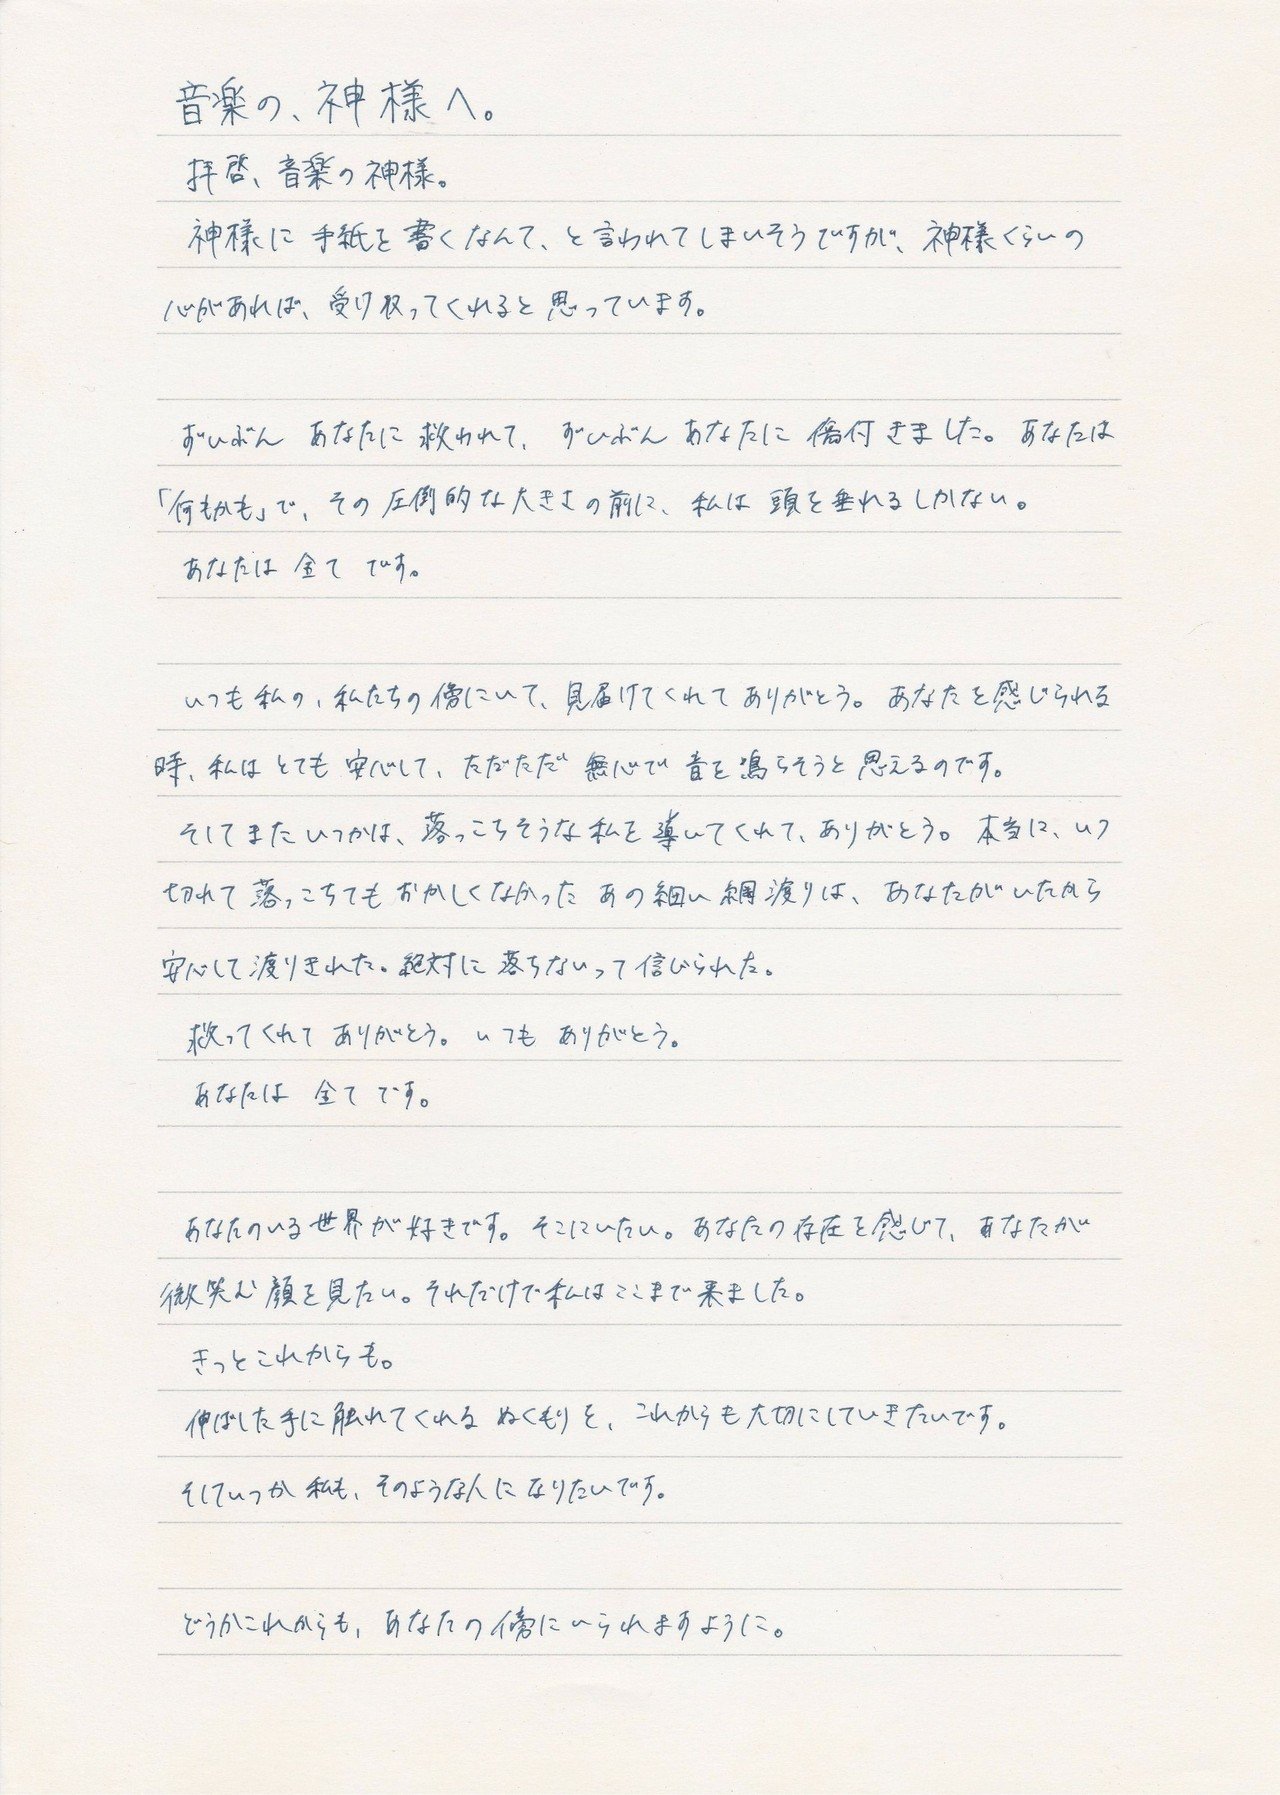 音楽の、神様へ。
拝啓、音楽の神様。
神様に手紙を書くなんて、と言われてしまいそうですが、神様くらいの
心があれば、受け取ってくれると思っています。
ずいぶんあなたに救われて、ずいぶんあなたに傷付きました。あなたは
「何もかも」で、その圧倒的な大きさの前に、私は頭を垂れるしかない。
あなたは全てです。
いつも私の、私たちの傍にいて、見届けてくれてありがとう。あなたを感じられる
時、私はとても安心して、ただただ無心で音を鳴らそうと思えるのです。
そしてまたいつかは、落っこちそうな私を導いてくれて、ありがとう。本当に、いつ
切れて落っこちてもおかしくなかったあの細い綱渡りは、あなたがいたから
安心して渡りきれた。絶対に落ちないって信じられた。
救ってくれてありがとう。いつもありがとう。
あなたは全てです。
あなたのいる世界が好きです。そこにいたい。あなたの存在を感じて、あなたが
微笑む顔を見たい。それだけで私はここまで来ました。
きっとこれからも。
伸ばした手に触れてくれるぬくもりを、これからも大切にしていきたいです。
そしていつか私も、そのような人になりたいです。
どうかこれからも、あなたの傍にいられますように。